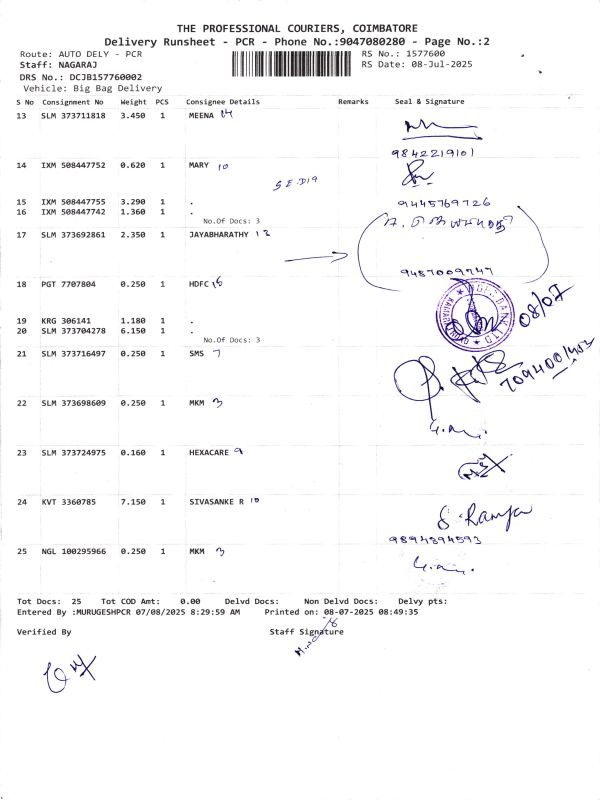 THE PROFESSIONAL COURIERS, COIMBATORE
Delivery Runsheet - PCR - Phone No.:9047080280 - Page No.:2
Route: AUTO DELY - PCR RS No.: 1577600
Staff: NAGARAJ RS Date: 08-Jul-2025
DRS No.: DCJB157760002
Vehicle: Big Bag Delivery
S No Consignment No Weight PCS Consignee Details Remarks Seal & Signature
13 SLM 373711818 3.450 1 MEENA 14
9842219101
14 IXM 508447752 0.620 1 MARY 10
15 IXM 508447755 3.290 1 . 9445769726
16 IXM 508447742 1.360 1 .
No.Of Docs: 3
17 SLM 373692861 2.350 1 JAYABHARATHY 13
9487009747
18 PGT 7707804 0.250 1 HDFC 16
08/07
19 KRG 306141 1.180 1 .
20 SLM 373704278 6.150 1 .
No.Of Docs: 3
21 SLM 373716497 0.250 1 SMS 7
22 SLM 373698609 0.250 1 MKM 3
23 SLM 373724975 0.160 1 HEXACARE 9
24 KVT 3360785 7.150 1 SIVASANKE R 10
S. Ramya
9894894593
25 NGL 100295966 0.250 1 MKM 3
Tot Docs: 25 Tot COD Amt: 0.00 Delvd Docs: Non Delvd Docs: Delvy pts:
Entered By :MURUGESHPCR 07/08/2025 8:29:59 AM Printed on: 08-07-2025 08:49:35
Verified By Staff Signature